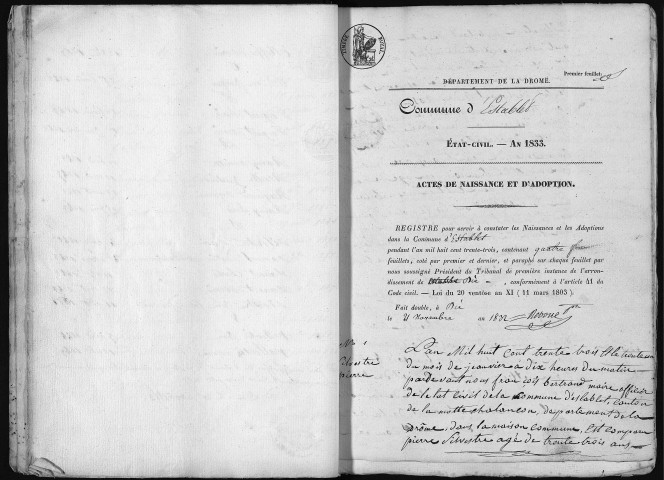 TIMBRE ROYAL
Premier feuillet.
DÉPARTEMENT DE LA DROME.
Commune d'Establet
ÉTAT-CIVIL. — AN 1833.
ACTES DE NAISSANCE ET D'ADOPTION.
REGISTRE pour servir à constater les Naissances et les Adoptions
dans la Commune d'Establet
pendant l'an mil huit cent trente-trois, contenant quatre
feuillets, coté par premier et dernier, et paraphé sur chaque feuillet par
nous soussigné Président du Tribunal de première instance de l'arron-
dissement de Die, conformément à l'article 41 du
Code civil. — Loi du 20 ventose an XI (11 mars 1803)
Fait double, à Die
le novembre an 1832
Silvestre
pierre
L'an Mil huit cent trente trois et le
du mois de janvier a dix heures du matin
pardevant nous françois bertrand maire officier
de letat civil de la commune d'establet, canton
de la motte chalancon, departement de la
drôme, dans la maison commune, Est comparu
pierre Silvestre agé de trente trois ans